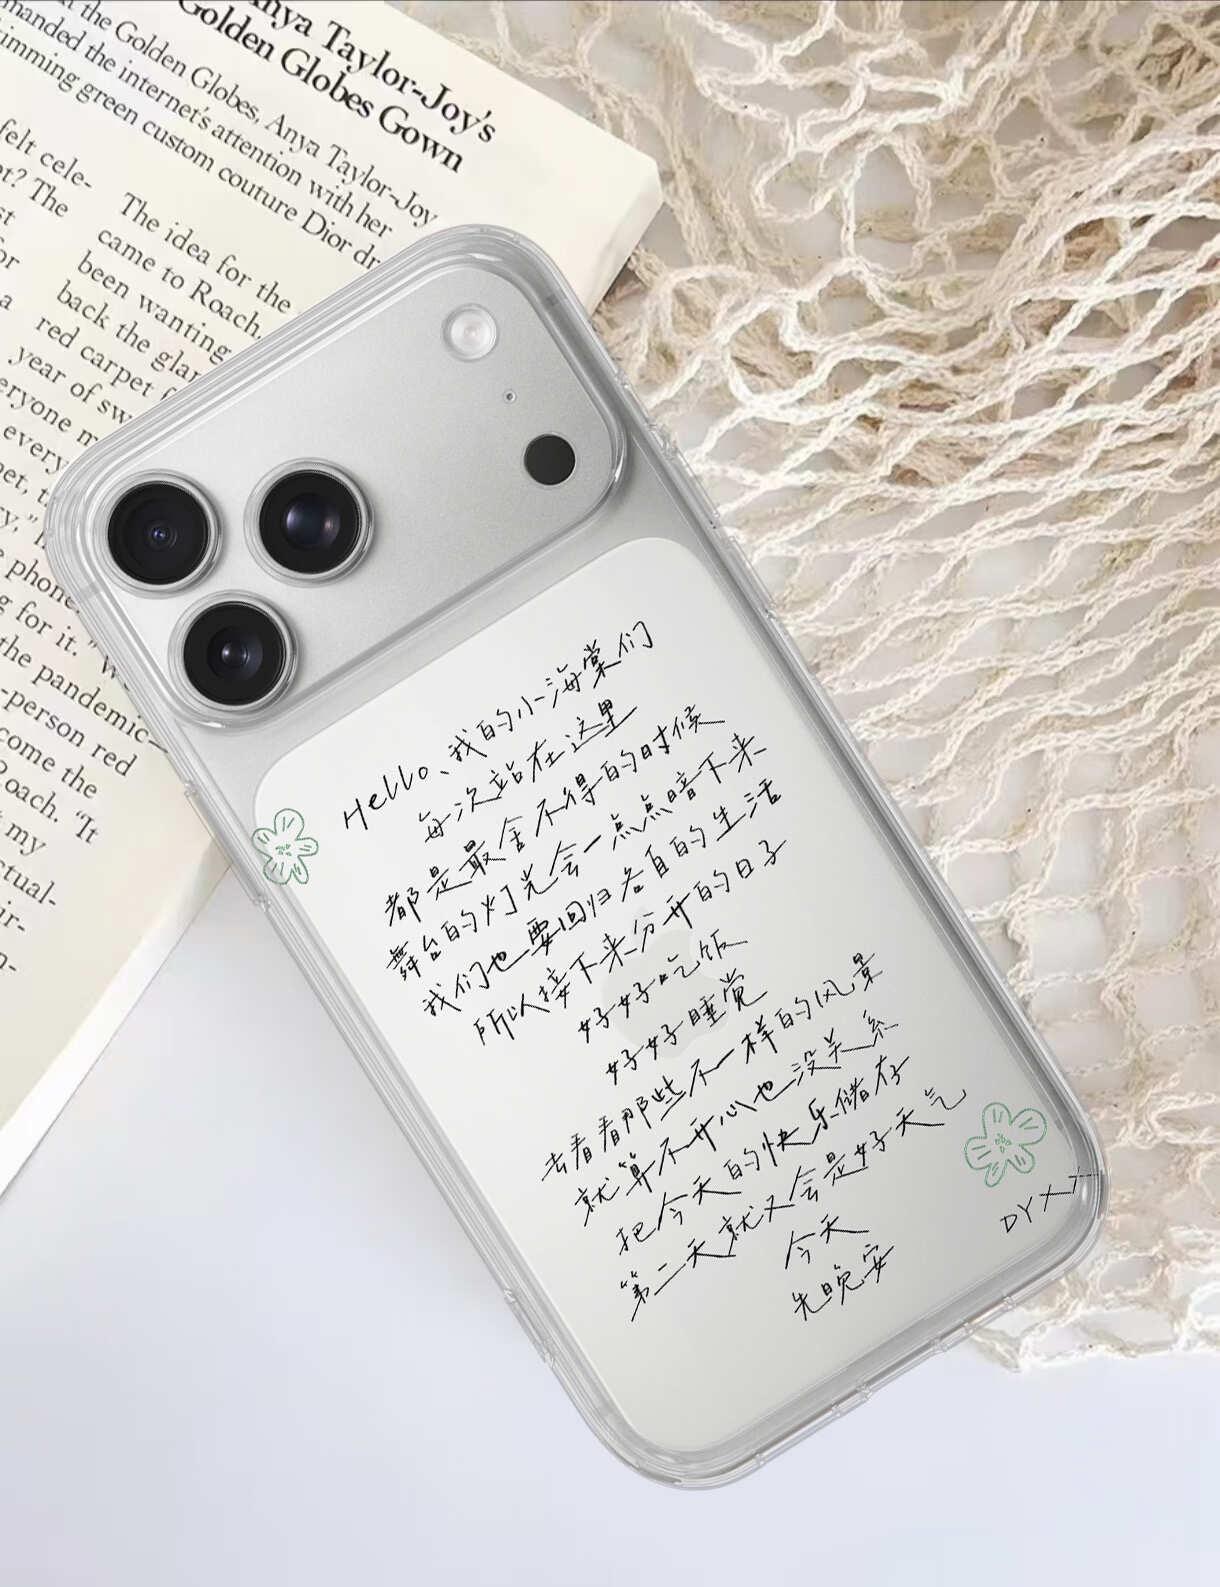 Anya Taylor-Joy's
Golden Globes Gown
at the Golden Globes, Anya Taylor-Joy
manded the internet's attention with her
imming green custom couture Dior dr
felt cele-
The
The idea for the
came to Roach,
been wanting
back the glar
red carpet
year of sw
everyone
every
phone
g for it."
the pandemic-
-person red
come the
Roach. "It
t my
ctual-
Hello、我的小海棠们
每次站在这里
都是最舍不得的时候
舞台的灯光会一点点暗下来
我们也要回归各自的生活
所以接下来分开的日子
好好吃饭
好好睡觉
去看看那些不一样的风景
就算不开心也没关系
把今天的快乐储存
第二天就又会是好天气
今天
先晚安
DYX